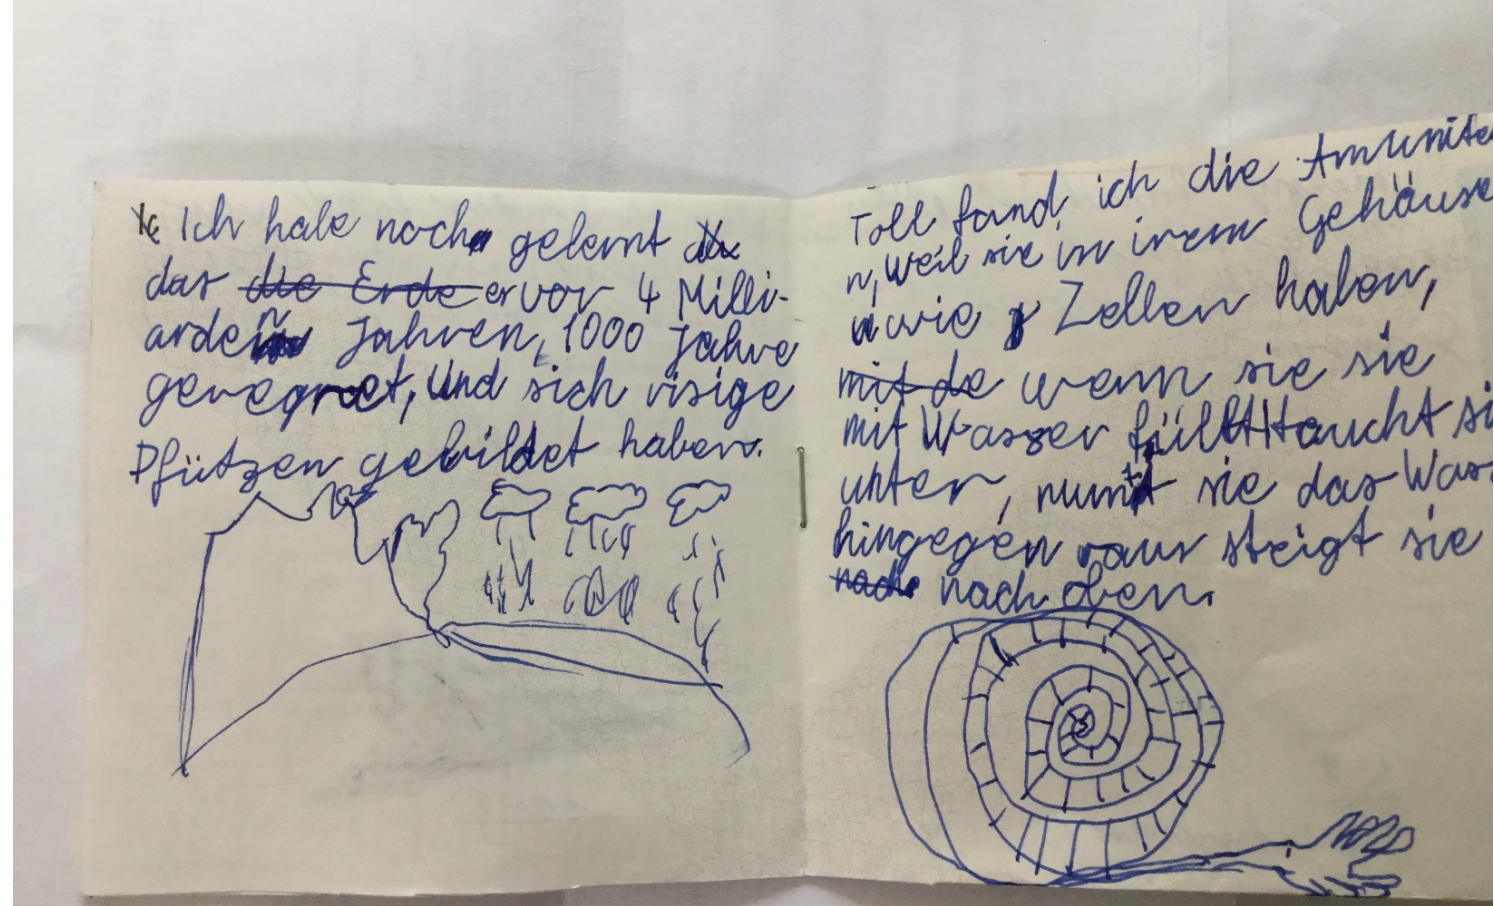 Ich habe noch gelernt
das die Erde er vor 4 Milli-
arden Jahren, 1000 Jahre
geregnet, und sich risige
Pfützen gebildet haben.
Toll fand ich die Amunite
n, weil sie in irem Gehäuse
wie Zellen haben,
mit de wenn sie sie
mit Wasser füllt taucht si
unter, numt sie das Was
hingegen raus steigt sie
nach nach oben.